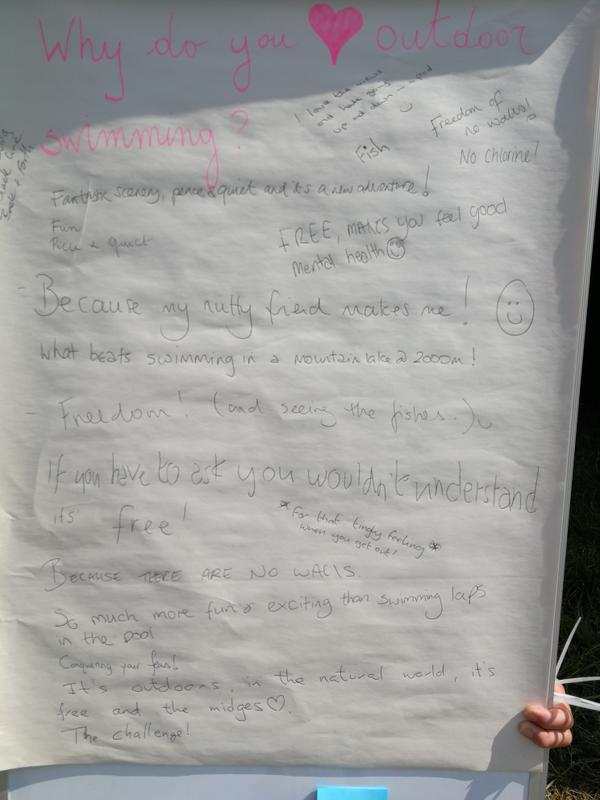 Why do you ♥ outdoor
swimming?
I love the views
and hate going
up and down in a pool
Freedom of
no walls!
Fish
No chlorine!
Fantastic scenery, peace & quiet and it's a new adventure!
Fun
Peace & quiet
FREE, makes you feel good
mental health
- Because my nutty friend makes me!
What beats swimming in a mountain lake @ 2000m!
- Freedom! (and seeing the fishes..)
If you have to ask you wouldn't understand
its free!
*For that tingly feeling *
when you get out!
BECAUSE THERE ARE NO WALLS
So much more fun & exciting than swimming laps
in the pool
Conquering your fears!
It's outdoors, in the natural world, it's
free and the midges ♡.
The challenge!